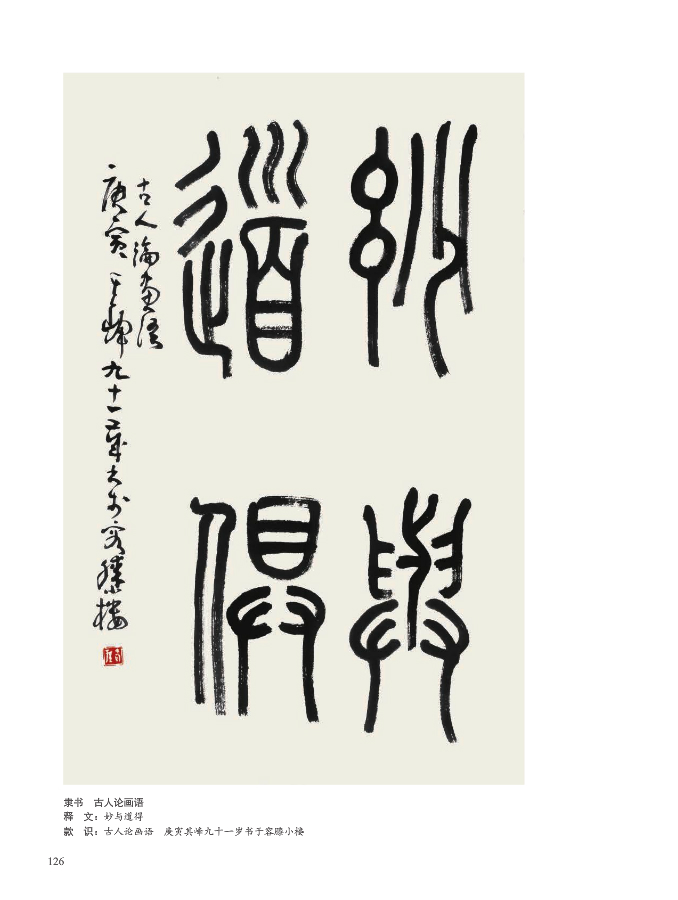 妙與
道俱
古人論畫語
庚寅其峰九十一歲书於容膝小楼
隶书　古人论画语
释　文：妙与道得
款　识：古人论画语　庚寅其峰九十一岁书于容膝小楼
126